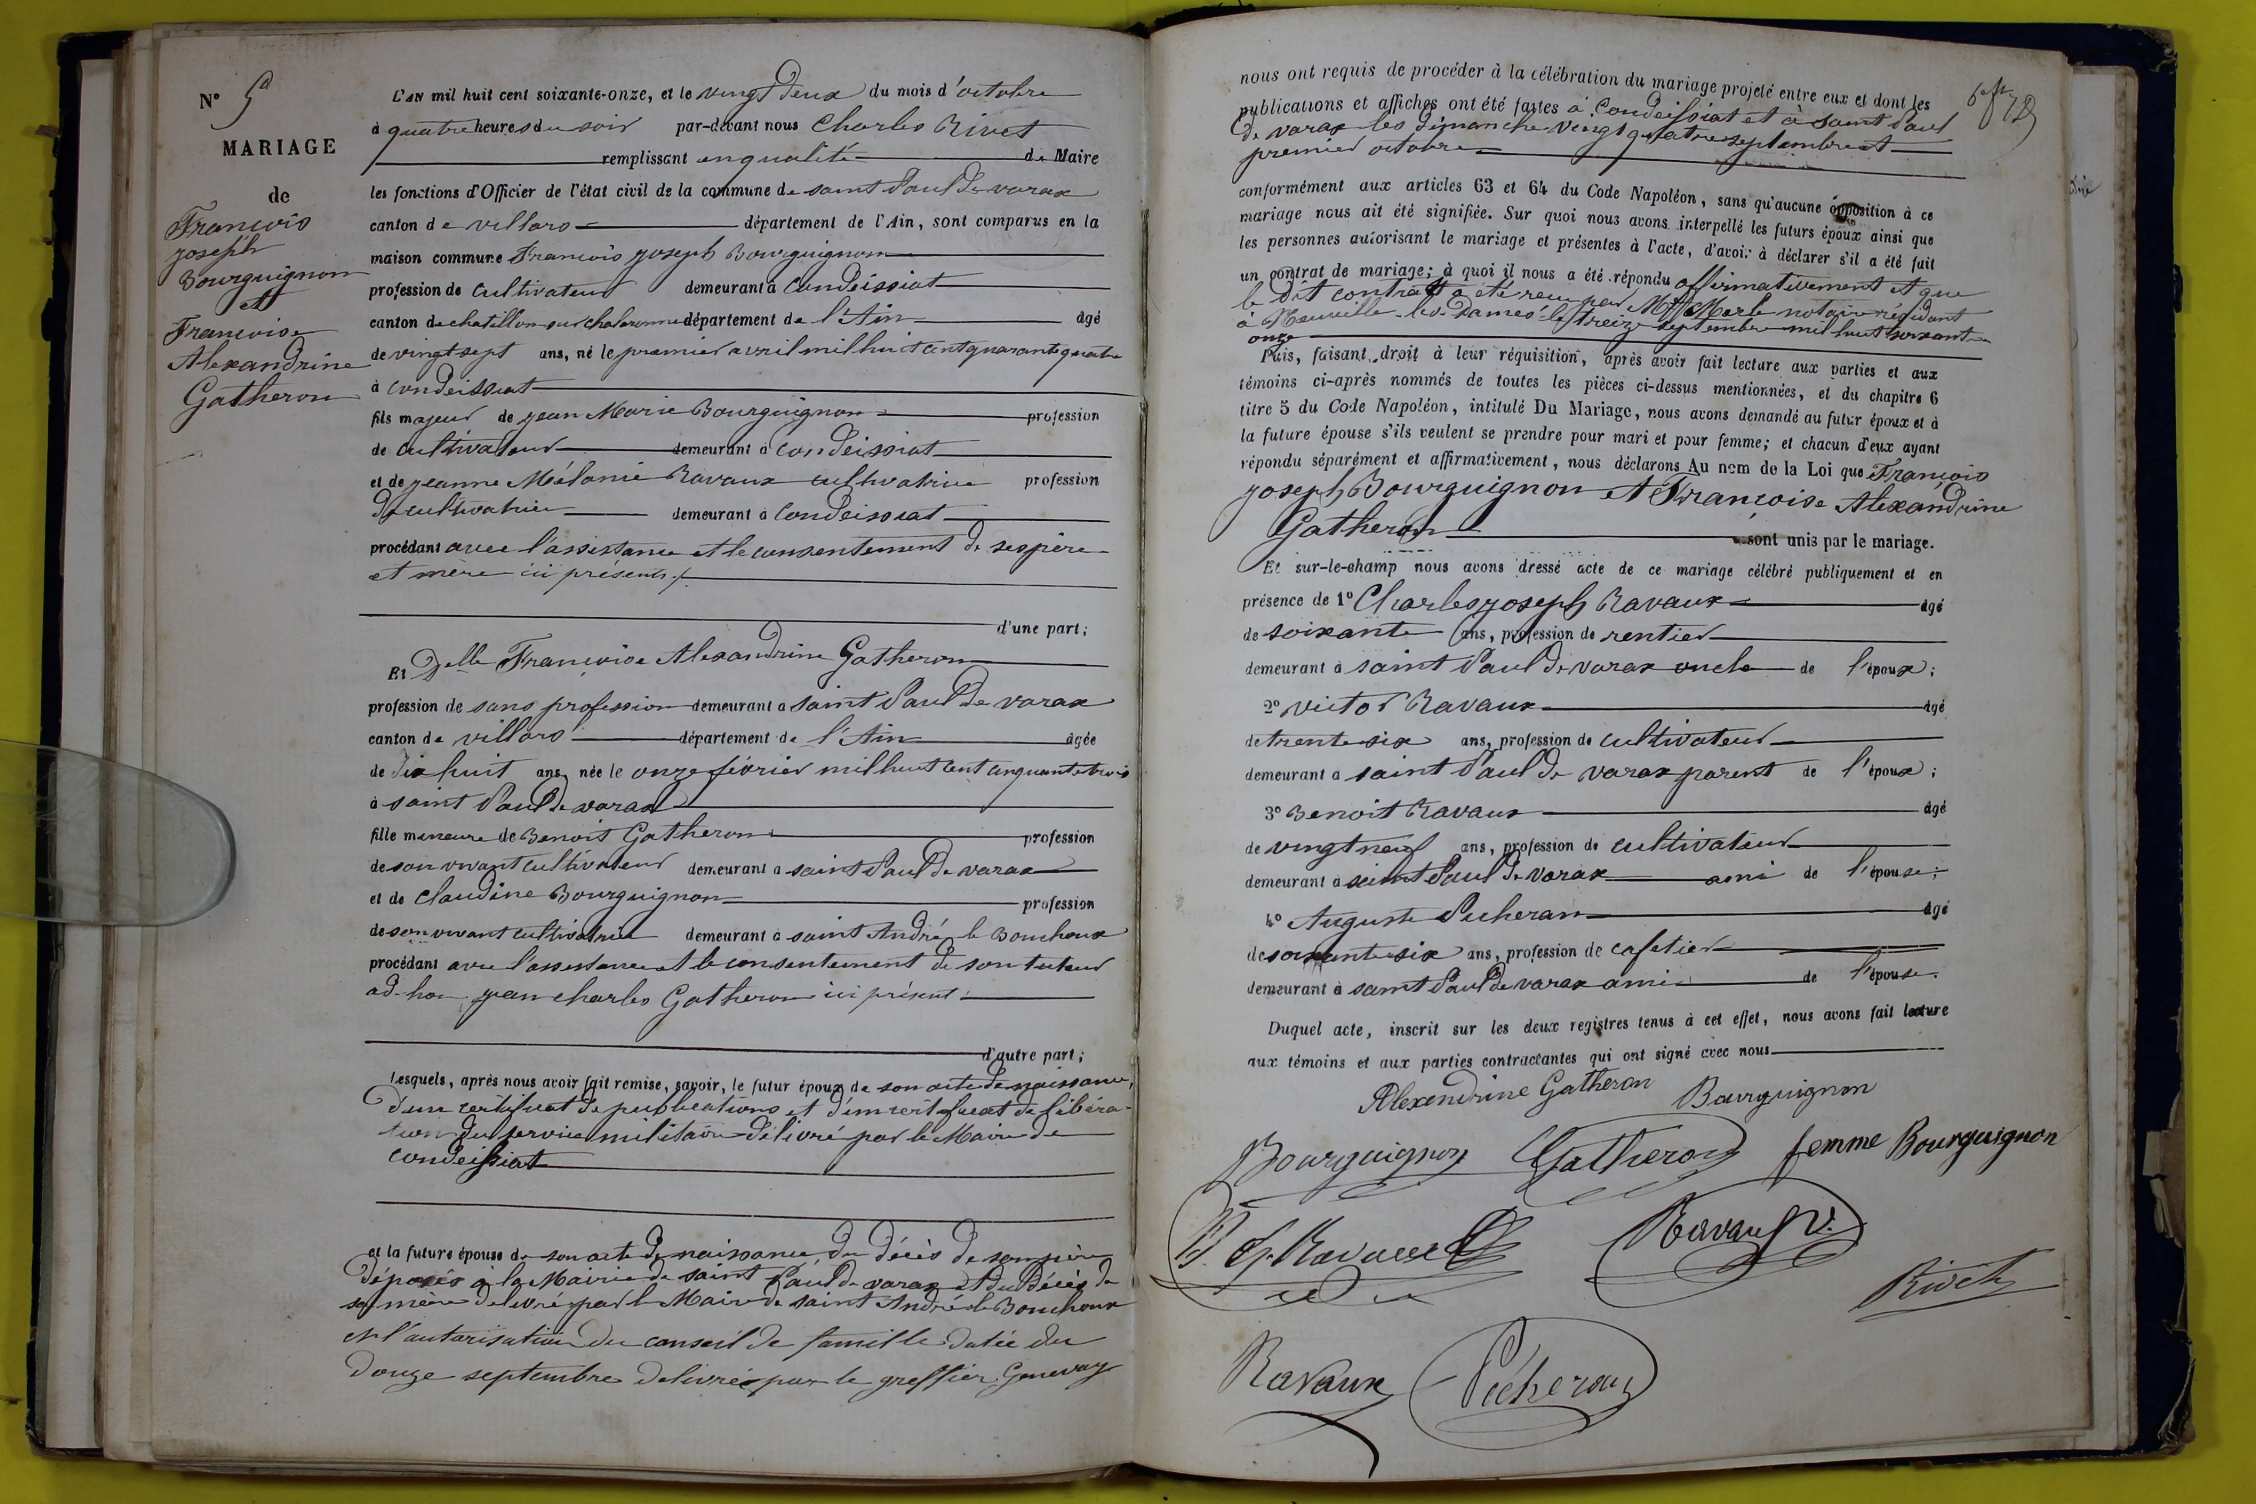 N° 5
MARIAGE
de
François
joseph
Bourguignon
et
Françoise
Alexandrine
Gatheron
L'AN mil huit cent soixante-onze, et le vingt deux du mois d'octobre
à quatre heures du soir par-devant nous Charles Rivet
remplissant en qualité de Maire
les fonctions d'Officier de l'état civil de la commune de saint Paul de varax
canton de villars département de l'Ain, sont comparus en la
maison commune François joseph Bourguignon
profession de cultivateur demeurant à Condeissiat
canton de chatillon sur chalaronne département de l'Ain âgé
de vingt sept ans, né le premier avril mil huit cent quarante quatre
à condeissiat
fils majeur de jean Marie Bourguignon profession
de cultivateur demeurant à Condeissiat
et de jeanne Mélanie Ravaux cultivatrice profession
de cultivatrice demeurant à Condeissiat
procédant avec l'assistance et le consentement de ses père
et mère ici présents
d'une part;
Et Delle Françoise Alexandrine Gatheron
profession de sans profession demeurant à saint Paul de varax
canton de villars département de l'Ain âgée
de dix huit ans, née le onze février mil huit cent cinquante trois
à saint Paul de varax
fille mineure de Benoit Gatheron profession
de son vivant cultivateur demeurant à saint Paul de varax
et de Claudine Bourguignon profession
de son vivant cultivatrice demeurant à saint André le Bouchoux
procédant avec l'assistance et le consentement de son tuteur
ad-hoc jean charles Gatheron ici présent
d'autre part;
Lesquels, après nous avoir fait remise, savoir, le futur époux de son acte de naissance,
d'un certificat de publications et d'un certificat de libéra-
tion du service militaire délivré par le Maire de
condeissiat
et la future épouse de son acte de naissance, du décès de son père
déposés à la Mairie de saint Paul de varax et du décès de
sa mère délivré par le Maire de saint André le Bouchoux
et l'autorisation du conseil de famille datée du
douze septembre délivrée par le greffier Genevay
nous ont requis de procéder à la célébration du mariage projeté entre eux et dont les
publications et affiches ont été faites à Condeissiat et à saint Paul
de varax les dimanche vingt quatre septembre et
premier octobre
conformément aux articles 63 et 64 du Code Napoléon, sans qu'aucune opposition à ce
mariage nous ait été signifiée. Sur quoi nous avons interpellé les futurs époux ainsi que
les personnes autorisant le mariage et présentes à l'acte, d'avoir à déclarer s'il a été fait
un contrat de mariage; à quoi il nous a été répondu affirmativement et que
le dit contrat a été reçu par Merle notaire résidant
à Neuville les dames le treize septembre mil huit soixante
onze
Puis, faisant droit à leur réquisition, après avoir fait lecture aux parties et aux
témoins ci-après nommés de toutes les pièces ci-dessus mentionnées, et du chapitre 6
titre 5 du Code Napoléon, intitulé Du Mariage, nous avons demandé au futur époux et à
la future épouse s'ils veulent se prendre pour mari et pour femme; et chacun d'eux ayant
répondu séparément et affirmativement, nous déclarons Au nom de la Loi que François
joseph Bourguignon et Françoise Alexandrine
Gatheron sont unis par le mariage.
Et sur-le-champ nous avons dressé acte de ce mariage célébré publiquement et en
présence de 1° Charles joseph Ravaux âgé
de soixante ans, profession de rentier
demeurant à saint Paul de varax oncle de l'époux;
2° victor Ravaux âgé
de trente six ans, profession de cultivateur
demeurant à saint Paul de varax parent de l'époux;
3° Benoit Ravaux âgé
de vingt neuf ans, profession de cultivateur
demeurant à saint Paul de varax ami de l'épouse;
4° Auguste Picheran âgé
de soixante six ans, profession de cafetier
demeurant à saint Paul de varax ami de l'épouse.
Duquel acte, inscrit sur les deux registres tenus à cet effet, nous avons fait lecture
aux témoins et aux parties contractantes qui ont signé avec nous
Alexandrine Gatheron Bourguignon
Bourguignon Gatheron femme Bourguignon
Ravaux Ravaux V.
Rivet
Ravaux